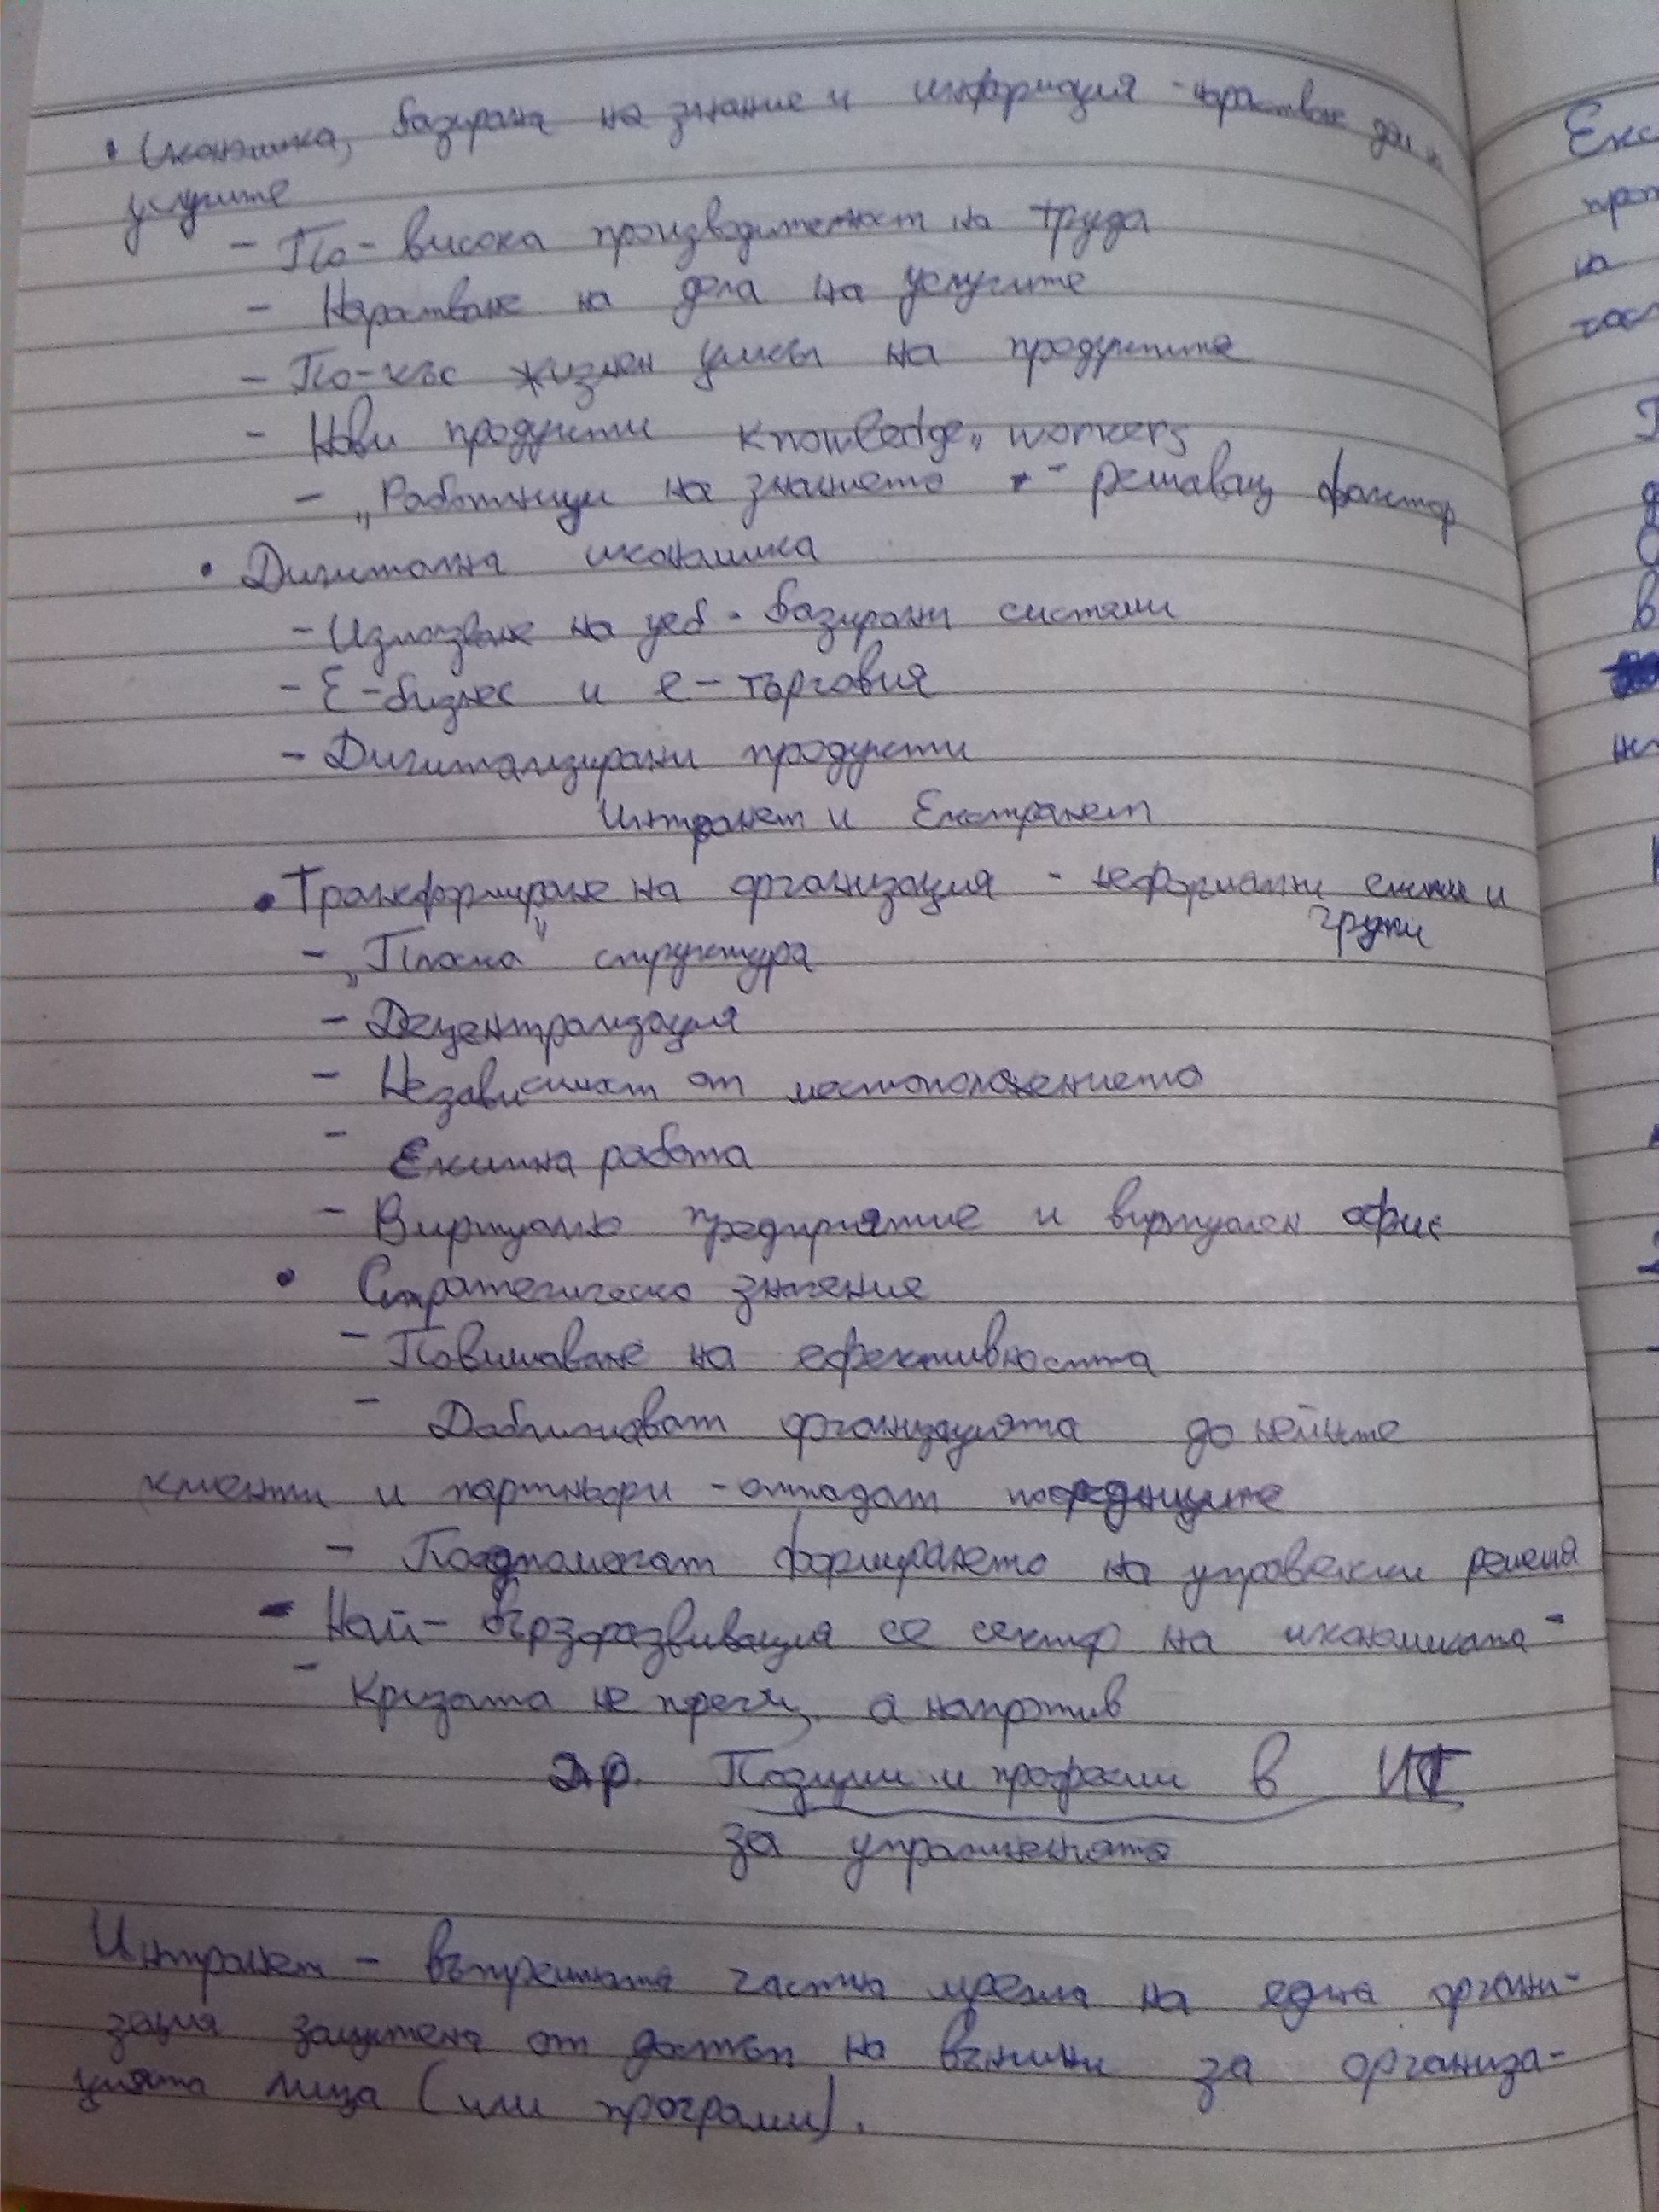 • Икономика, базирана на знание и информация - нарастване дял н
услугите
- По-висока производителност на труда
- Нарастване на дела на услугите
- По-къс жизнен цикъл на продуктите
- Нови продукти knowledge „ workers
- „Работници на знанието - решаващ фактор
• Дигитална икономика
- Използване на уеб-базирани системи
- Е-бизнес и е-търговия
- Дигитализирани продукти
Интранет и Екстранет
• Трансформиране на организация - неформални екипи и
групи
- „Плоска" структура
- Децентрализация
- Независимост от местоположението
- Екипна работа
- Виртуално предприятие и виртуален офис
• Стратегическо значение
- Повишаване на ефективността
- Доближават организацията до нейните
клиенти и партньори - отпадат посредниците
- Подпомагат формирането на управленски решения
- Най-бързоразвиващия се сектор на икономиката -
- Кризата не пречи, а напротив
Др. Позиции и професии в ИТ
за упражненията
Интранет - вътрешната частна мрежа на една органи-
зация защитена от достъп на външни за организа-
цията лица (или програми).
Екс
на